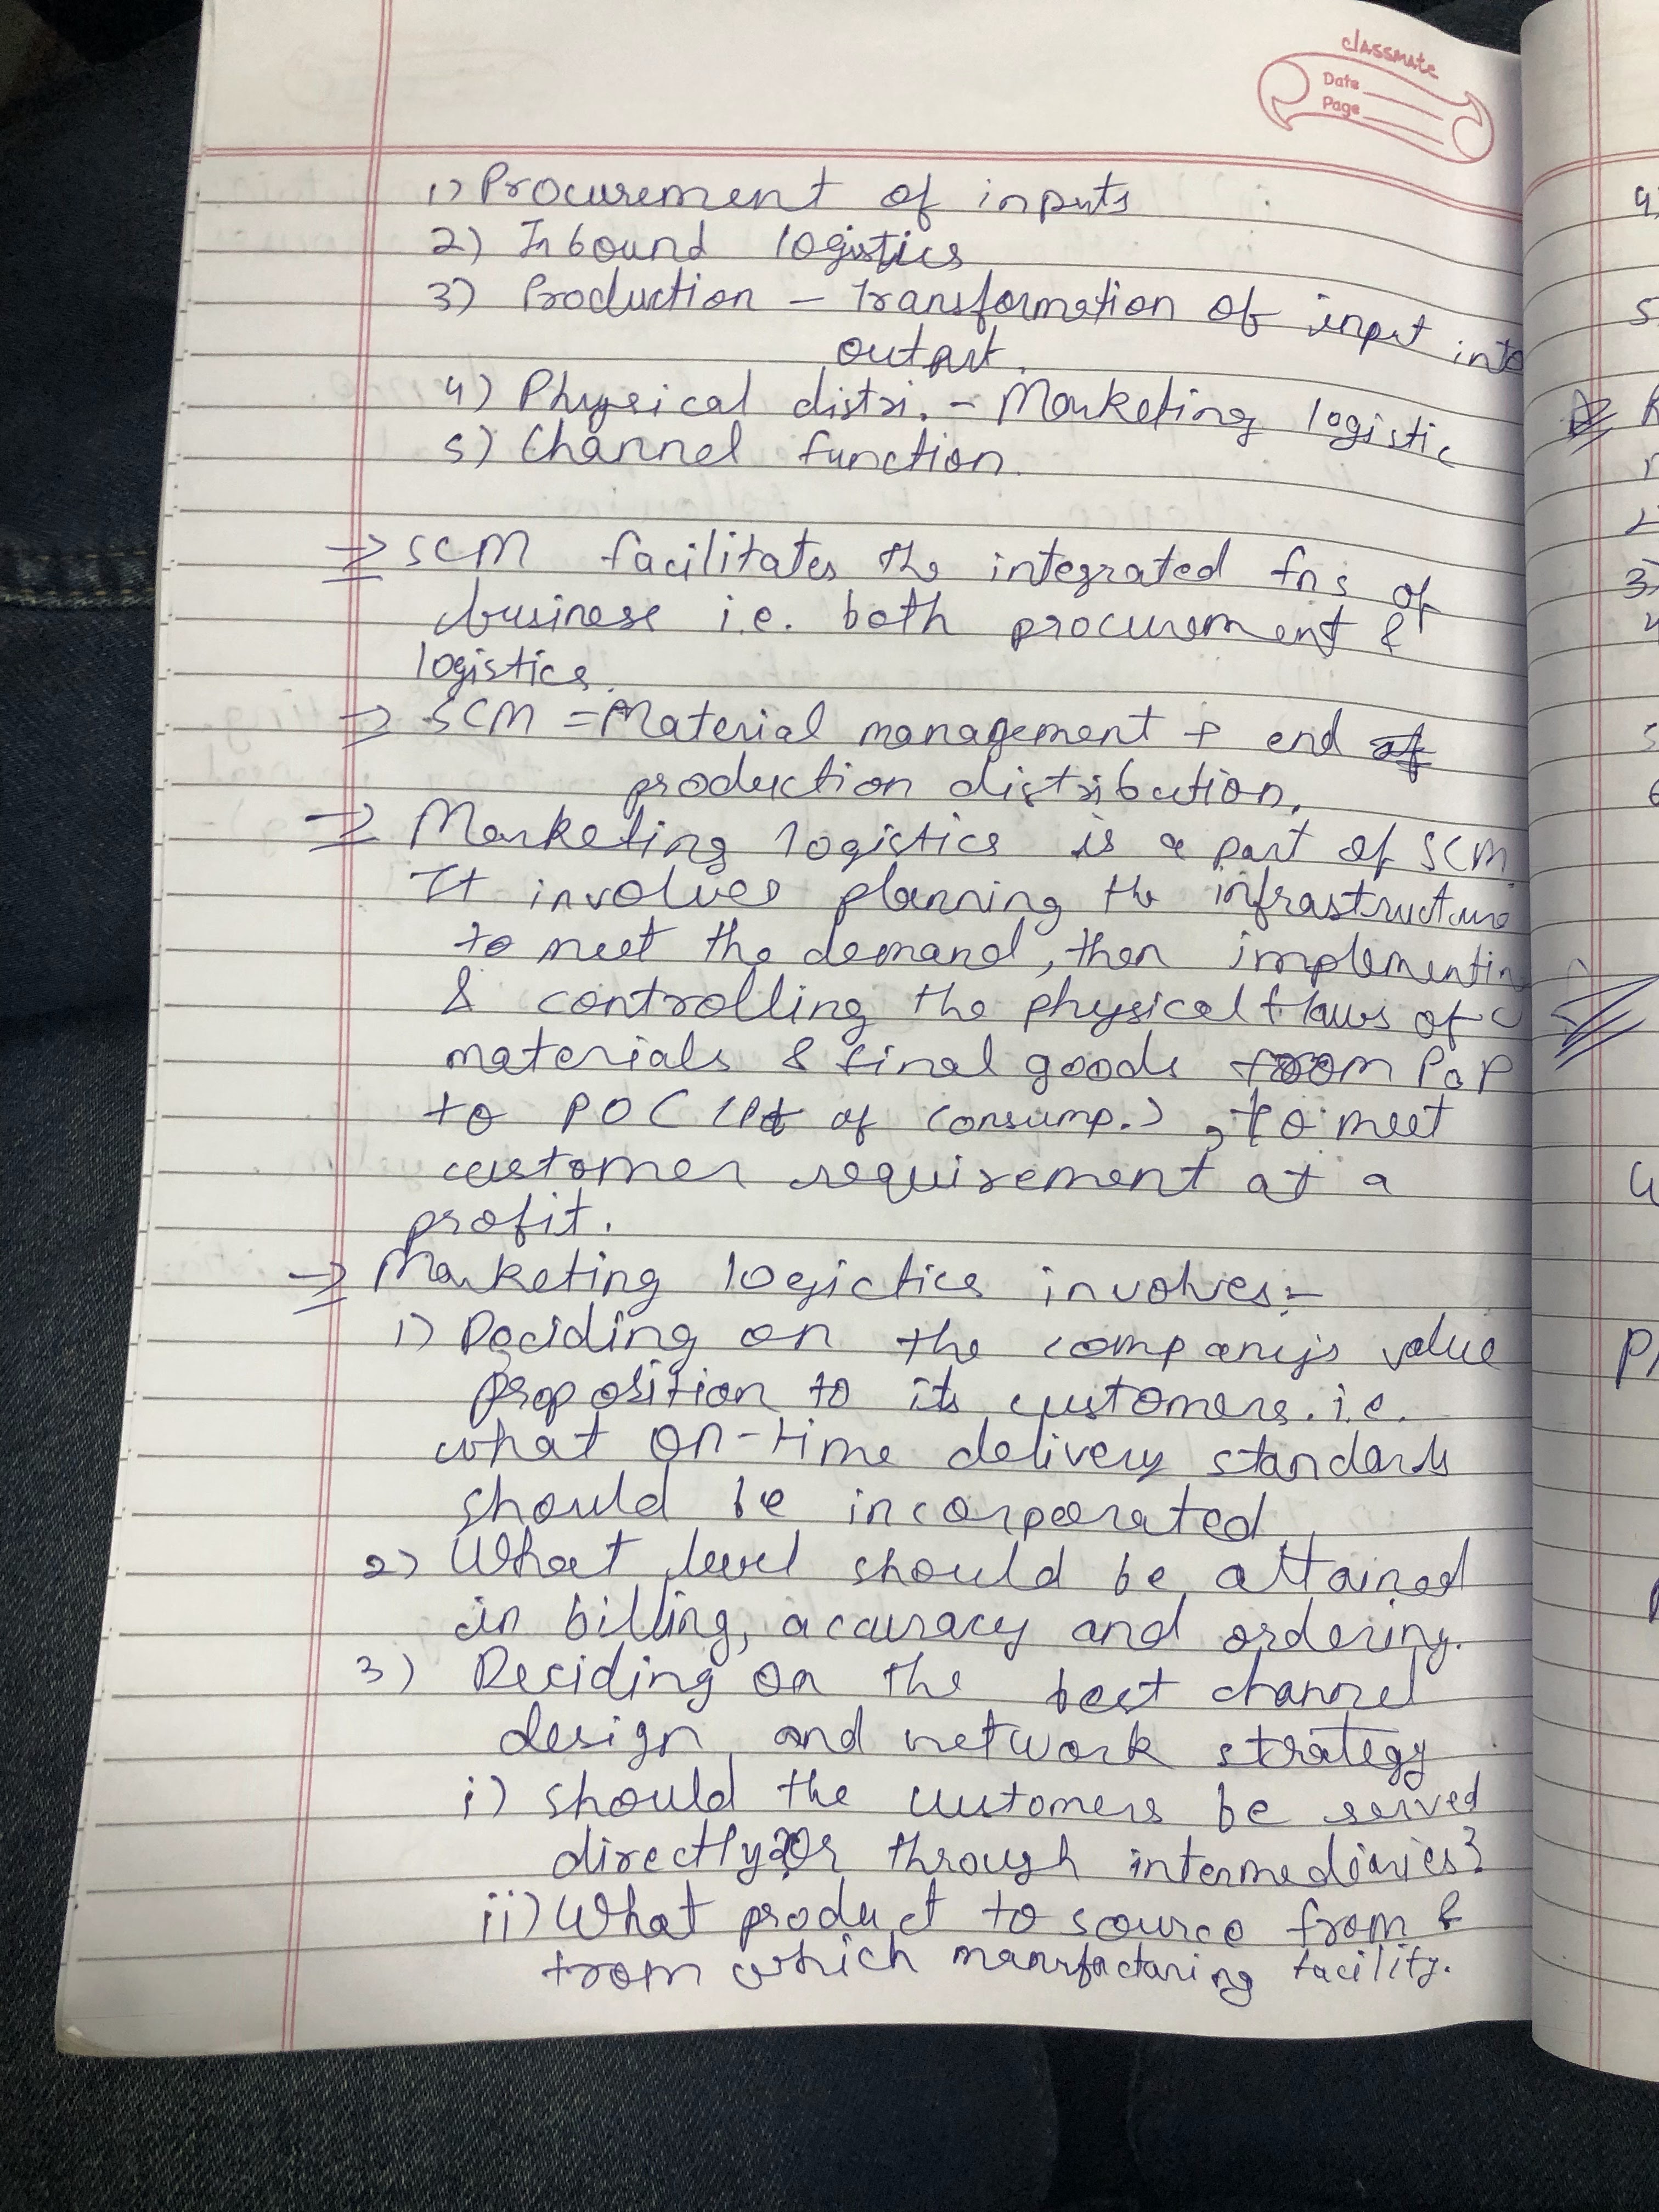 classmate
Date
Page
1) Procurement of inputs
2) Inbound logistics
3) Production – Transformation of input into
output.
4) Physical distri. – Marketing logistic
5) Channel function.
⇒ SCM facilitates the integrated fns of
business i.e. both procurement &
logistics.
⇒ SCM = Material management + end of
production distribution.
⇒ Marketing logistics is a part of SCM.
It involves planning the infrastructure
to meet the demand, then implementin
& controlling the physical flows of
materials & final goods from PoP
to POC (Pt of consump.), to meet
customer requirement at a
profit.
⇒ Marketing logictics involves:-
1) Deciding on the company's value
proposition to its customers. i.e.
what on-time delivery standards
should be incorporated.
2) What level should be attained
in billing, accuracy and ordering.
3) Deciding on the best channel
design and network strategy
i) should the customers be served
directly or through intermediaries?
ii) What product to source from &
from which manufacturing facility.